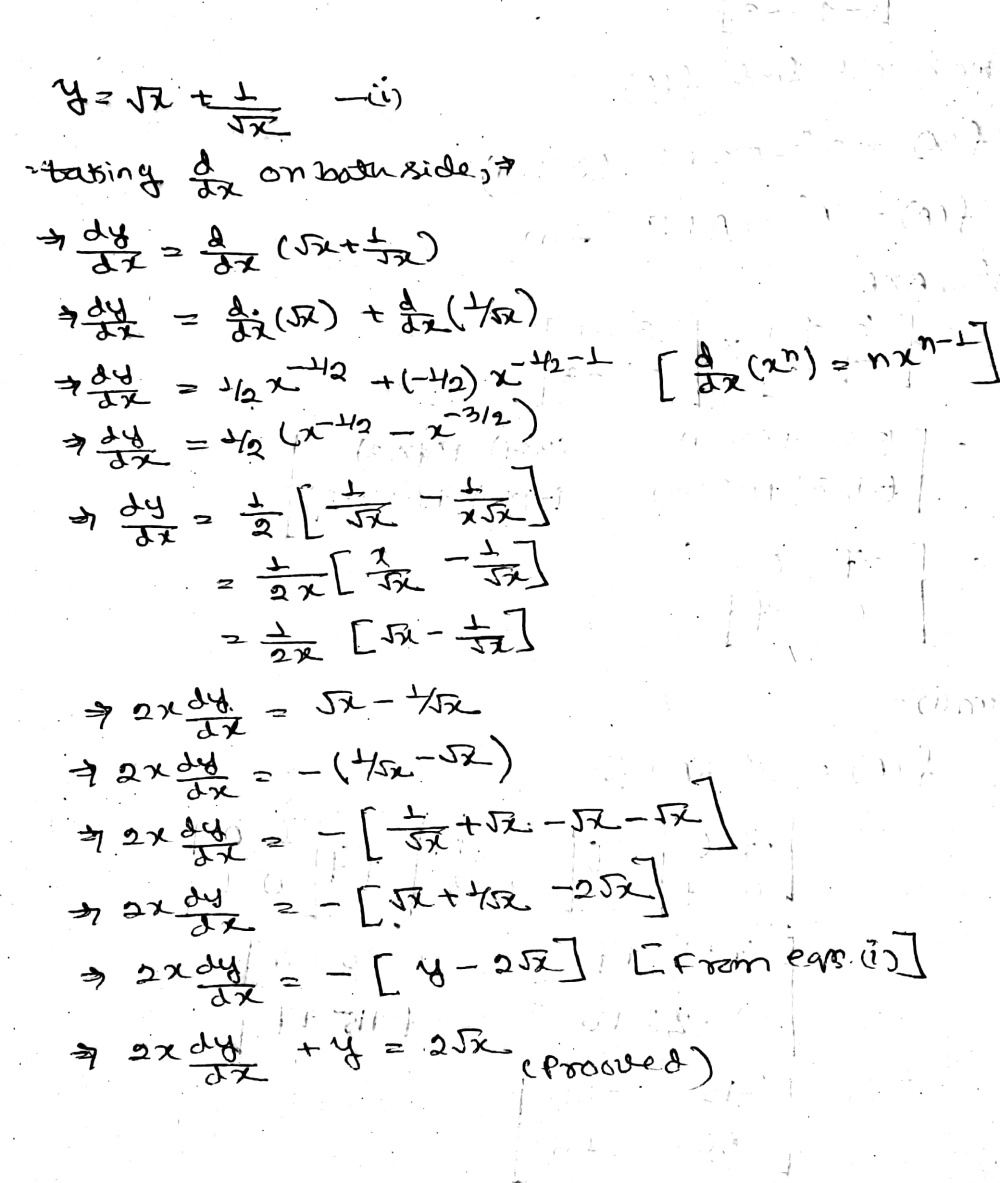 y = √x + 1/√x —(i)
taking d/dx on both side, ⇒
⇒ dy/dx = d/dx (√x + 1/√x)
⇒ dy/dx = d/dx (√x) + d/dx (1/√x)
⇒ dy/dx = 1/2 x^(-1/2) + (-1/2) x^(-1/2-1) [d/dx (xⁿ) = nx^(n-1)]
⇒ dy/dx = 1/2 (x^(-1/2) - x^(-3/2))
⇒ dy/dx = 1/2 [1/√x - 1/(x√x)]
= 1/(2x) [x/√x - 1/√x]
= 1/(2x) [√x - 1/√x]
⇒ 2x dy/dx = √x - 1/√x
⇒ 2x dy/dx = -(1/√x - √x)
⇒ 2x dy/dx = -[1/√x + √x - √x - √x]
⇒ 2x dy/dx = -[√x + 1/√x - 2√x]
⇒ 2x dy/dx = -[y - 2√x] [From eqn. (i)]
⇒ 2x dy/dx + y = 2√x (Prooved).